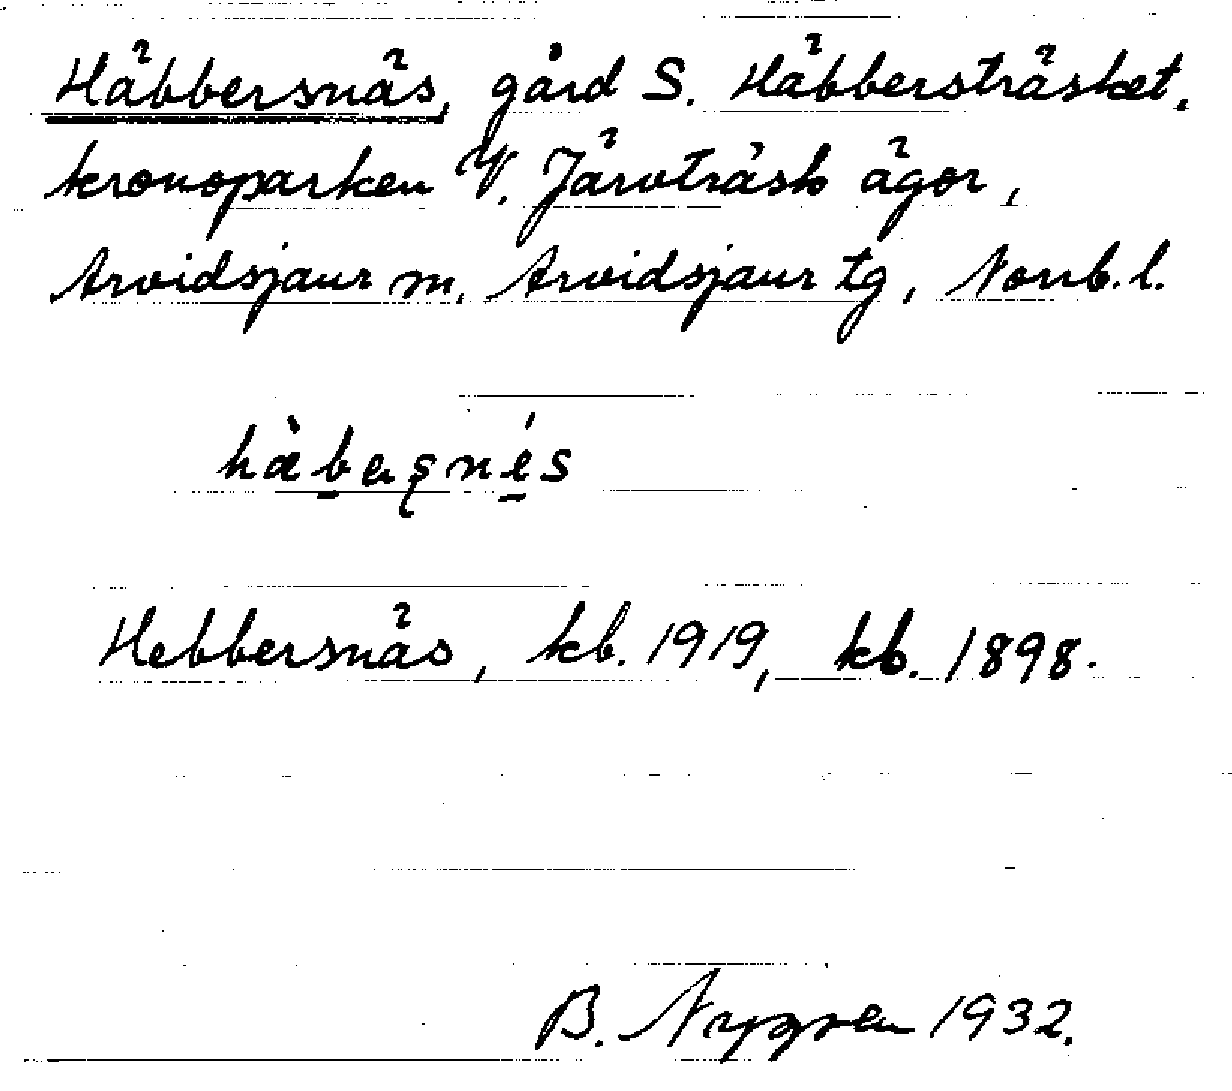 Häbbersnäs, gård S. Häbbersträsket,
kronoparken V. Järvträsk ägor,
Arvidsjaur sn, Arvidsjaur tg, Norrb. l.
Hebbersnäs, kb. 1919, kb. 1898.
B. Nygren 1932.